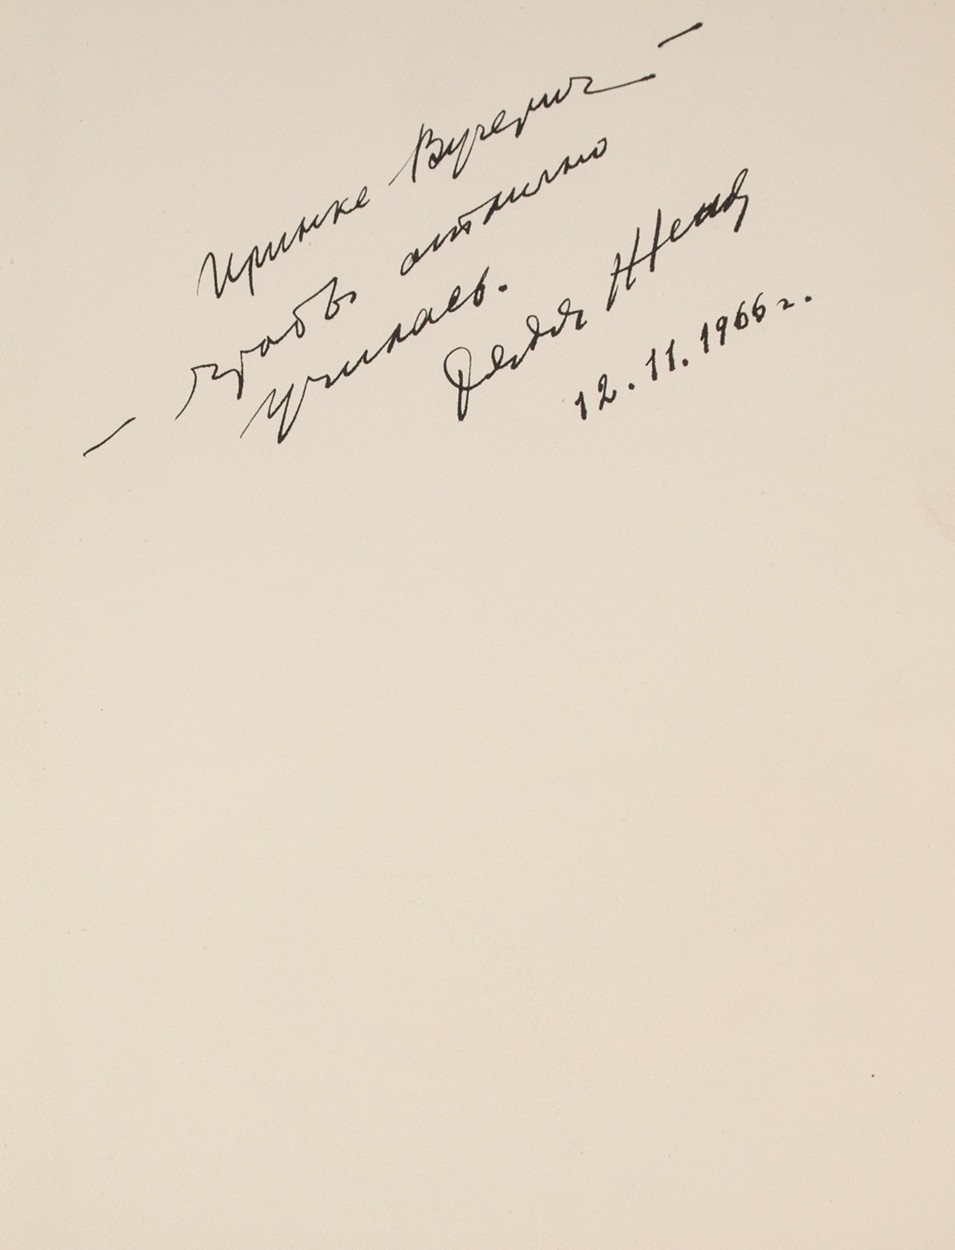 Иринке Вучетич —
— чтобы отлично
училась.
Дядя Женя
12.11.1966 г.